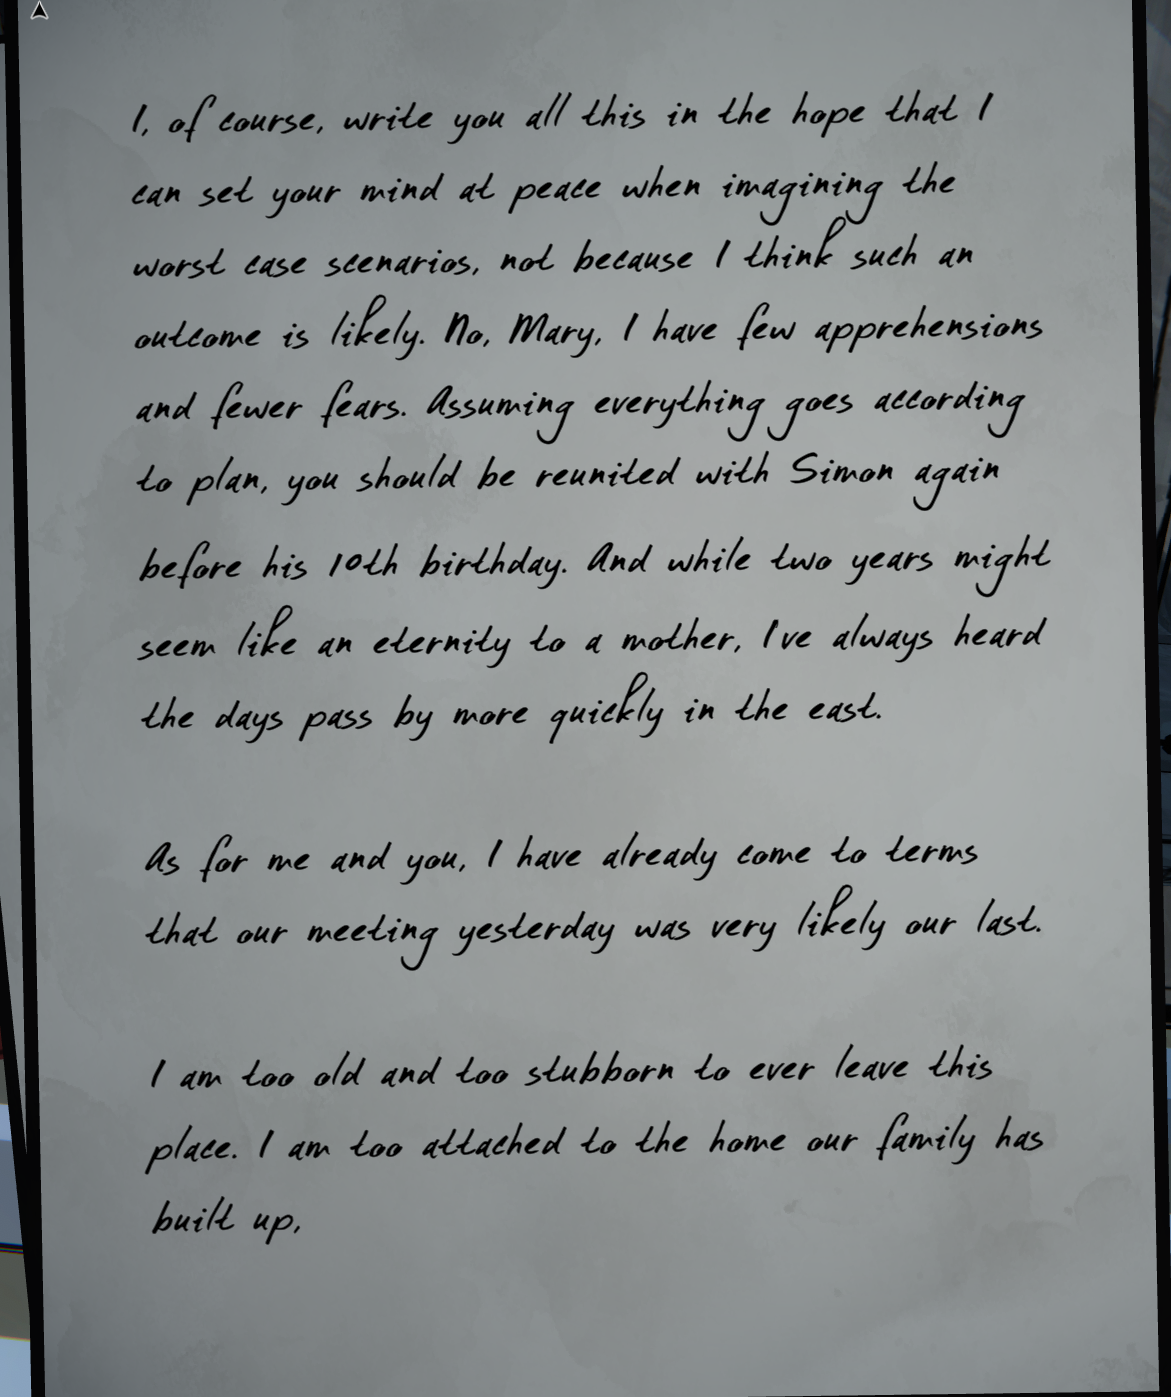 I, of course, write you all this in the hope that I
can set your mind at peace when imagining the
worst case scenarios, not because I think such an
outcome is likely. No, Mary, I have few apprehensions
and fewer fears. Assuming everything goes according
to plan, you should be reunited with Simon again
before his 10th birthday. And while two years might
seem like an eternity to a mother, I've always heard
the days pass by more quickly in the east.
As for me and you, I have already come to terms
that our meeting yesterday was very likely our last.
I am too old and too stubborn to ever leave this
place. I am too attached to the home our family has
built up,